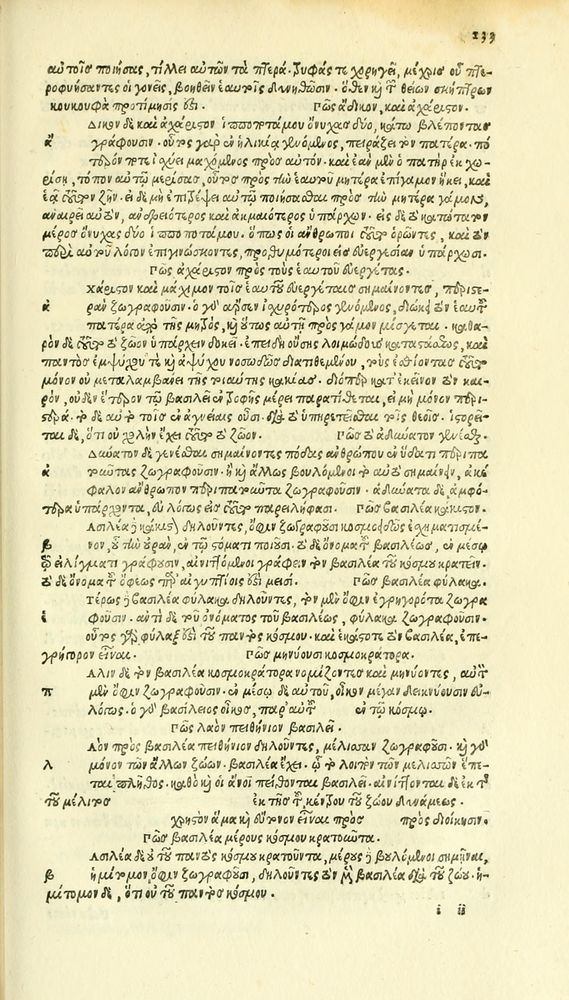 133
αὐτοῖς ποιήσας, τίλλει αὐτῶν τὰ πτερά. τροφάς τε χορηγεῖ, μέχρις οὗ πτε-
ροφυήσαντες οἱ γονεῖς, βοηθεῖν ἑαυτοῖς δυνηθῶσιν. ὅθεν καὶ τῶν θείων σκήπτρων
κουκουφὰ προτίμησίς ἐστι. Πῶς ἄδικον, καὶ ἀχάριστον.
Αδικον δὲ καὶ ἀχάριστον ἱπποποτάμου ὄνυχας δύο, κάτω βλέποντας
α γράφουσιν. οὗτος γὰρ ἐν ἡλικίᾳ γενόμενος, πειράζει τὸν πατέρα. πό
τερον ποτε ἰσχύει μαχόμενος πρὸς αὐτόν. καὶ ἐὰν μὲν ὁ πατὴρ ἐκχω-
ρήσῃ, τόπον αὐτῷ μερίσας, οὗτος πρὸς τὴν ἑαυτοῦ μητέρα ἐπὶ γάμον ἥκει, καὶ
ἐᾷ τοῦτον ζῆν. εἰ δὲ μὴ ἐπιτρέψει αὐτῷ ποιήσασθαι πρὸς τὴν μητέρα γάμον,
ἀναιρεῖ αὐτὸν, ἀνδρειότερος καὶ ἀκμαιότερος ὑπάρχων. εἰς δὲ τὸ κατώτατον
μέρος ὄνυχας δύο ἱπποποτάμου. ὅπως οἱ ἄνθρωποι τοῦτο ὁρῶντες, καὶ τὸν
περὶ αὐτοῦ λόγον ἐπιγινώσκοντες, προθυμότεροι εἰς εὐεργεσίαν ὑπάρχωσι.
Πῶς ἀχάριστον πρὸς τοὺς ἑαυτοῦ εὐεργέτας.
Αχάριστον καὶ μάχιμον τοῖς ἑαυτοῦ εὐεργέταις σημαίνοντες, περιστε-
α ρὰν ζωγραφοῦσιν. ὁ γὰρ ἄρσην ἰσχυρότερος γενόμενος, διώκει τὸν ἑαυτοῦ
πατέρα ἀπὸ τῆς μητρὸς, καὶ οὕτως αὐτῇ πρὸς γάμον μίσγεται. καθα-
ρὸν δὲ τὸ ζῶον ὑπάρχειν δοκεῖ. ἐπειδὴ οὔσης λοιμώδους καταστάσεως, καὶ
παντὸς ἐμψύχου τε καὶ ἀψύχου νοσωδῶς διατιθεμένου, τοὺς ἐσθίοντας τοῦτο
μόνον οὐ μεταλαμβάνει τῆς τοιαύτης κακίας. διόπερ κατ' ἐκεῖνον τὸν και-
ρὸν, οὐδὲν ἕτερον τῷ βασιλεῖ ἐν τροφῆς μέρει παρατίθεται, εἰ μὴ μόνον περι-
στερά. τὸ δὲ αὐτὸ τοῖς ἐν ἁγνείαις οὖσι. διὰ τὸ ὑπηρετεῖσθαι τοῖς θεοῖς. ἱστορεῖ-
ται δὲ, ὅτι οὐ χολὴν ἔχει τοῦτο τὸ ζῶον. Πῶς τὸ ἀδύνατον γενέσθαι.
Αδύνατον δὲ γενέσθαι σημαίνοντες πόδας ἀνθρώπου ἐν ὕδατι περιπα
α τοῦντας ζωγραφοῦσιν. ἢ καὶ ἄλλως βουλόμενοι τὸ αὐτὸ σημαίνειν, ἀκέ
φαλον ἄνθρωπον περιπατοῦντα ζωγραφοῦσιν. ἀδύνατα δὲ ἀμφό-
τερα ὑπάρχοντα, εὐλόγως εἰς τοῦτο παρειλήφασι. Πῶς βασιλέα κάκιστον.
Βασιλέα κάκιστον δηλοῦντες, ὄφιν ζωγραφοῦσι κοσμοειδῶς ἐσχηματισμέ-
β νον, οὗ τὴν οὐρὰν, ἐν τῷ στόματι ποιοῦσι. τὸ δὲ ὄνομα τοῦ βασιλέως, ἐν μέσῳ
τῷ εἱλίγματι γράφουσιν, αἰνιττόμενοι γράφειν τὸν βασιλέα τοῦ κόσμου κρατεῖν.
τὸ δὲ ὄνομα τοῦ ὄφεως παρ' αἰγυπτίοις ἐστὶ μεισί. Πῶς βασιλέα φύλακα.
Ετέρως δὲ βασιλέα φύλακα δηλοῦντες, τὸν μὲν ὄφιν ἐγρηγορότα ζωγρα
ε φοῦσιν. ἀντὶ δὲ τοῦ ὀνόματος τοῦ βασιλέως, φύλακα ζωγραφοῦσιν.
οὗτος γὰρ φύλαξ ἐστὶ τοῦ παντὸς κόσμου. καὶ ἑκάστοτε τὸν βασιλέα, ἐπε-
γρήγορον εἶναι. Πῶς μηνύουσι κοσμοκράτορα.
Αλιν δὲ τὸν βασιλέα κοσμοκράτορα νομίζοντες καὶ μηνύοντες, αὐτὸν
π μὲν ὄφιν ζωγραφοῦσιν. ἐν μέσῳ δὲ αὐτοῦ, οἶκον μέγαν δεικνύουσιν εὐ-
λόγως. ὁ γὰρ βασίλειος οἶκος, παρ' αὐτοῦ ἐν τῷ κόσμῳ.
Πῶς λαὸν πειθήνιον βασιλεῖ.
Αὸν πρὸς βασιλέα πειθήνιον δηλοῦντες, μέλισσαν ζωγραφοῦσι. καὶ γὰρ
λ μόνον τῶν ἄλλων ζώων. βασιλέα ἔχει. ᾧ τὸ λοιπὸν τῶν μελισσῶν ἕπε-
ται πλῆθος. καθὸ καὶ οἱ ἄνοι πείθονται βασιλεῖ. αἰνίττονται δὲ ἐκ τῆς
τοῦ μέλιτος ἐκ τῆς τοῦ κέντρου τοῦ ζώου δυνάμεως.
χρηστὸν ἅμα καὶ εὔτονον εἶναι πρὸς πρὸς διοίκησιν.
Πῶς βασιλέα μέρους κόσμου κρατοῦντα.
Ασιλέα δὲ οὐ τοῦ παντὸς κόσμου κρατοῦντα, μέρους δὲ βουλόμενοι σημῆναι,
β ἡμίτομον ὄφιν ζωγραφοῦσι, δηλοῦντες τὸν μὲν βασιλέα διὰ τοῦ ζώου. ἡ-
μίτομον δὲ, ὅτι οὐ τοῦ παντὸς κόσμου.
i ii